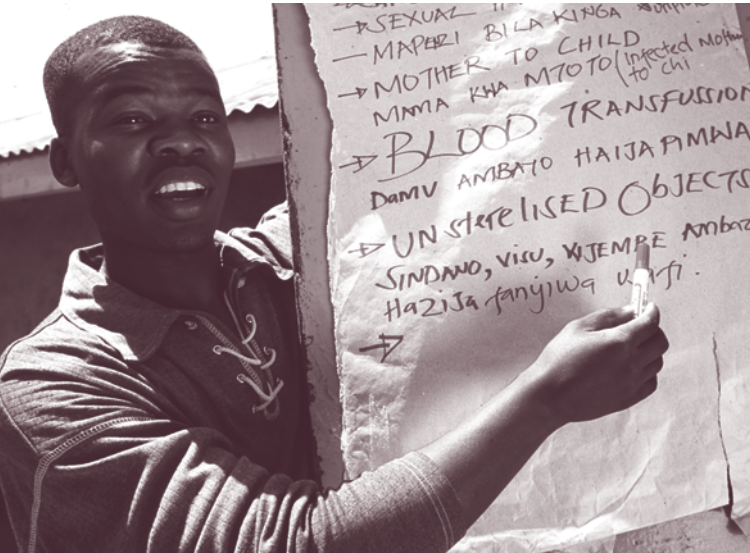 → SEXUAL
— MAPENZI BILA KINGA
→ MOTHER TO CHILD (infected Moth
MAMA KWA MTOTO to chi
→ BLOOD TRANSFUSSION
DAMU AMBAYO HAIJAPIMWA
→ UNSterelISED ObJECTS
SINDANO, VISU, VIJEMBE Ambaz
HaZiJa fanyiwa
→